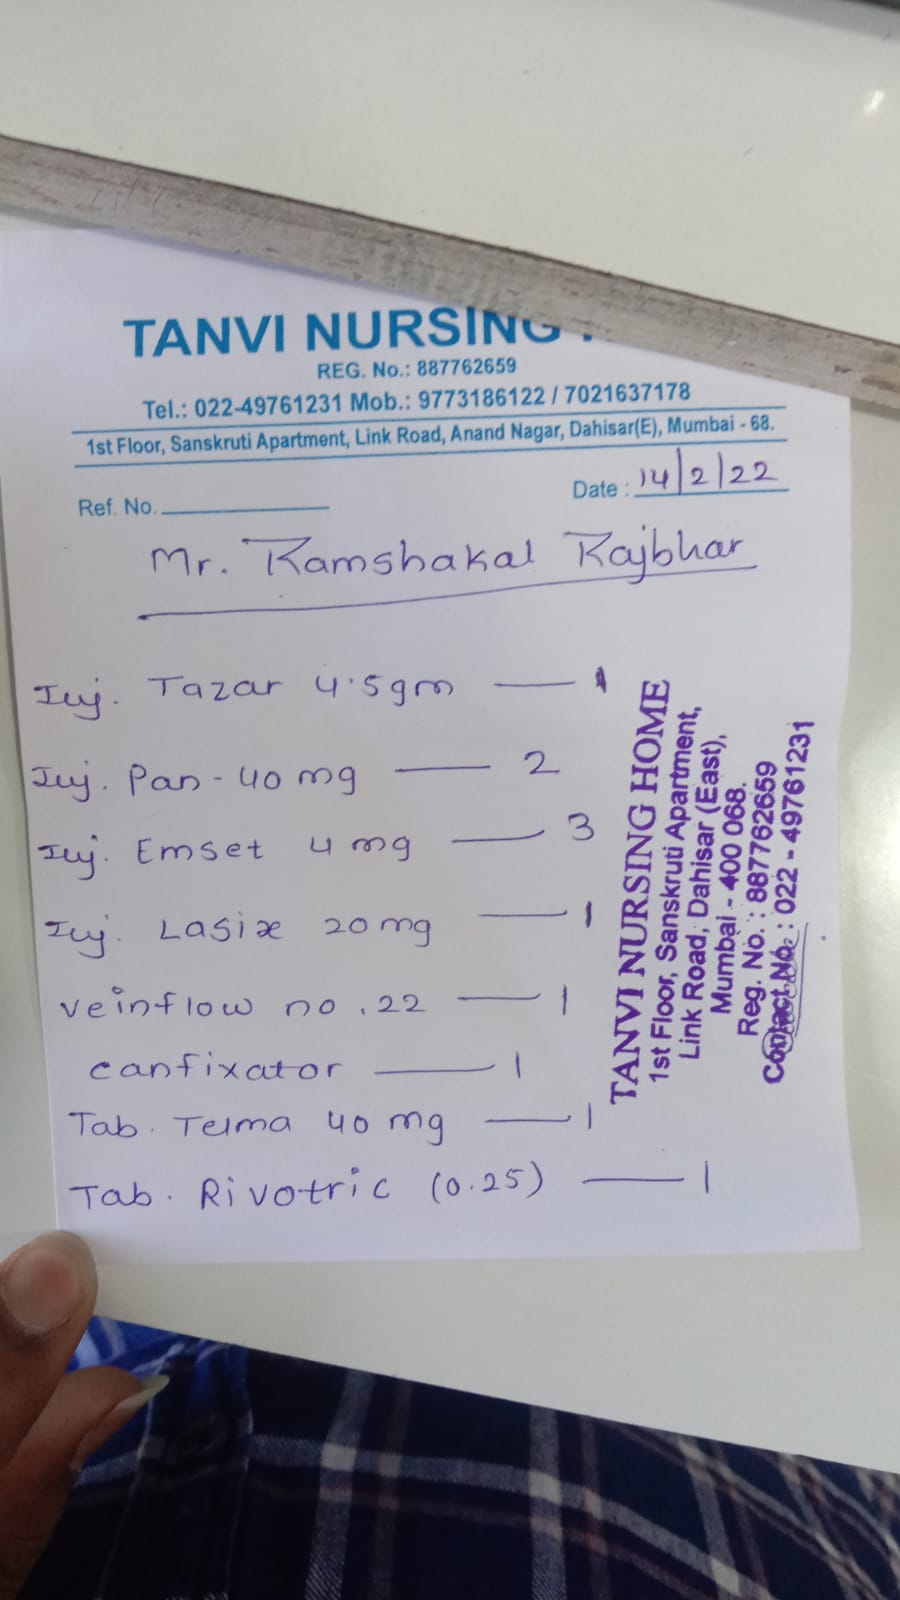 TANVI NURSING
REG. No.: 887762659
Tel.: 022-49761231 Mob.: 9773186122 / 7021637178
1st Floor, Sanskruti Apartment, Link Road, Anand Nagar, Dahisar(E), Mumbai - 68.
Ref. No.
Date : 14/2/22
Mr. Ramshakal Rajbhar
Inj. Tazar 4.5gm — 1
Inj. Pan-40 mg — 2
Inj. Emset 4 mg — 3
Inj. Lasix 20 mg — 1
veinflow no .22 — 1
canfixator — 1
Tab. Telma 40 mg — 1
Tab. Rivotric (0.25) — 1
TANVI NURSING HOME
1st Floor, Sanskruti Apartment,
Link Road, Dahisar (East),
Mumbai - 400 068.
Reg. No. : 887762659
Contact No. : 022 - 49761231